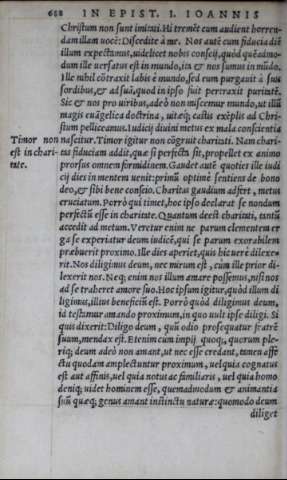 688 IN EPIST. I. IOANNIS
Christum non sunt imitati. Hi tremēt cum audient horren-
dam illam uocē: Discedite à me. Nos autē cum fiducia diē
illum expectamus, uidelicet nobis conscij, quòd quēadmo-
dum ille uersatus est in mundo, ita & nos sumus in mūdo.
Ille nihil cōtraxit labis è mundo, sed eum purgauit à suis
sordibus, & ad suā, quoad in ipso fuit pertraxit puritatē.
Sic & nos pro uiribus, adeò non miscemur mundo, ut illū
magis euāgelica doctrina, uitaq́; castis exēplis ad Chri-
stum pelliceamus. Iudicij diuini metus ex mala conscientia
Timor non nascitur. Timor igitur non cōgruit charitati. Nam chari-
est in chari- tas fiduciam addit, quæ si perfecta sit, propellet ex animo
tate. prorsus omnem formidinem. Gaudet autē quoties ille iudi
cij dies in mentem uenit: primū optimè sentiens de bono
deo, & sibi bene conscio. Charitas gaudium adfert, metus
cruciatum. Porrò qui timet, hoc ipso declarat se nondum
perfectū esse in charitate. Quantum deest charitati, tantū
accedit ad metum. Veretur enim ne parum clementem er
ga se experiatur deum iudicē, qui se parum exorabilem
præbuerit proximo. Ille dies aperiet, quis hic uerè dilexe-
rit. Nos diligimus deum, nec mirum est, cum ille prior di-
lexerit nos. Neq; enim nos illum amare possemus, nisi nos
ad se traheret amore suo. Hoc ipsum igitur, quòd illum di
ligimus, illius beneficiū est. Porrò quòd diligimus deum,
id testamur amando proximum, in quo uult ipse diligi. Si
quis dixerit: Diligo deum, quū odio prosequatur fratrē
suum, mendax est. Etenim cum impij quoq;, quorum ple-
riq; deum adeò non amant, ut nec esse credant, tamen affe
ctu quodam amplectuntur proximum, uel quia cognatus
est aut affinis, uel quia notus ac familiaris, uel quia homo
deniq; uidet hominem esse, quemadmodum & animantia
suū quæq; genus amant instinctu naturæ: quomodo deum
diliget